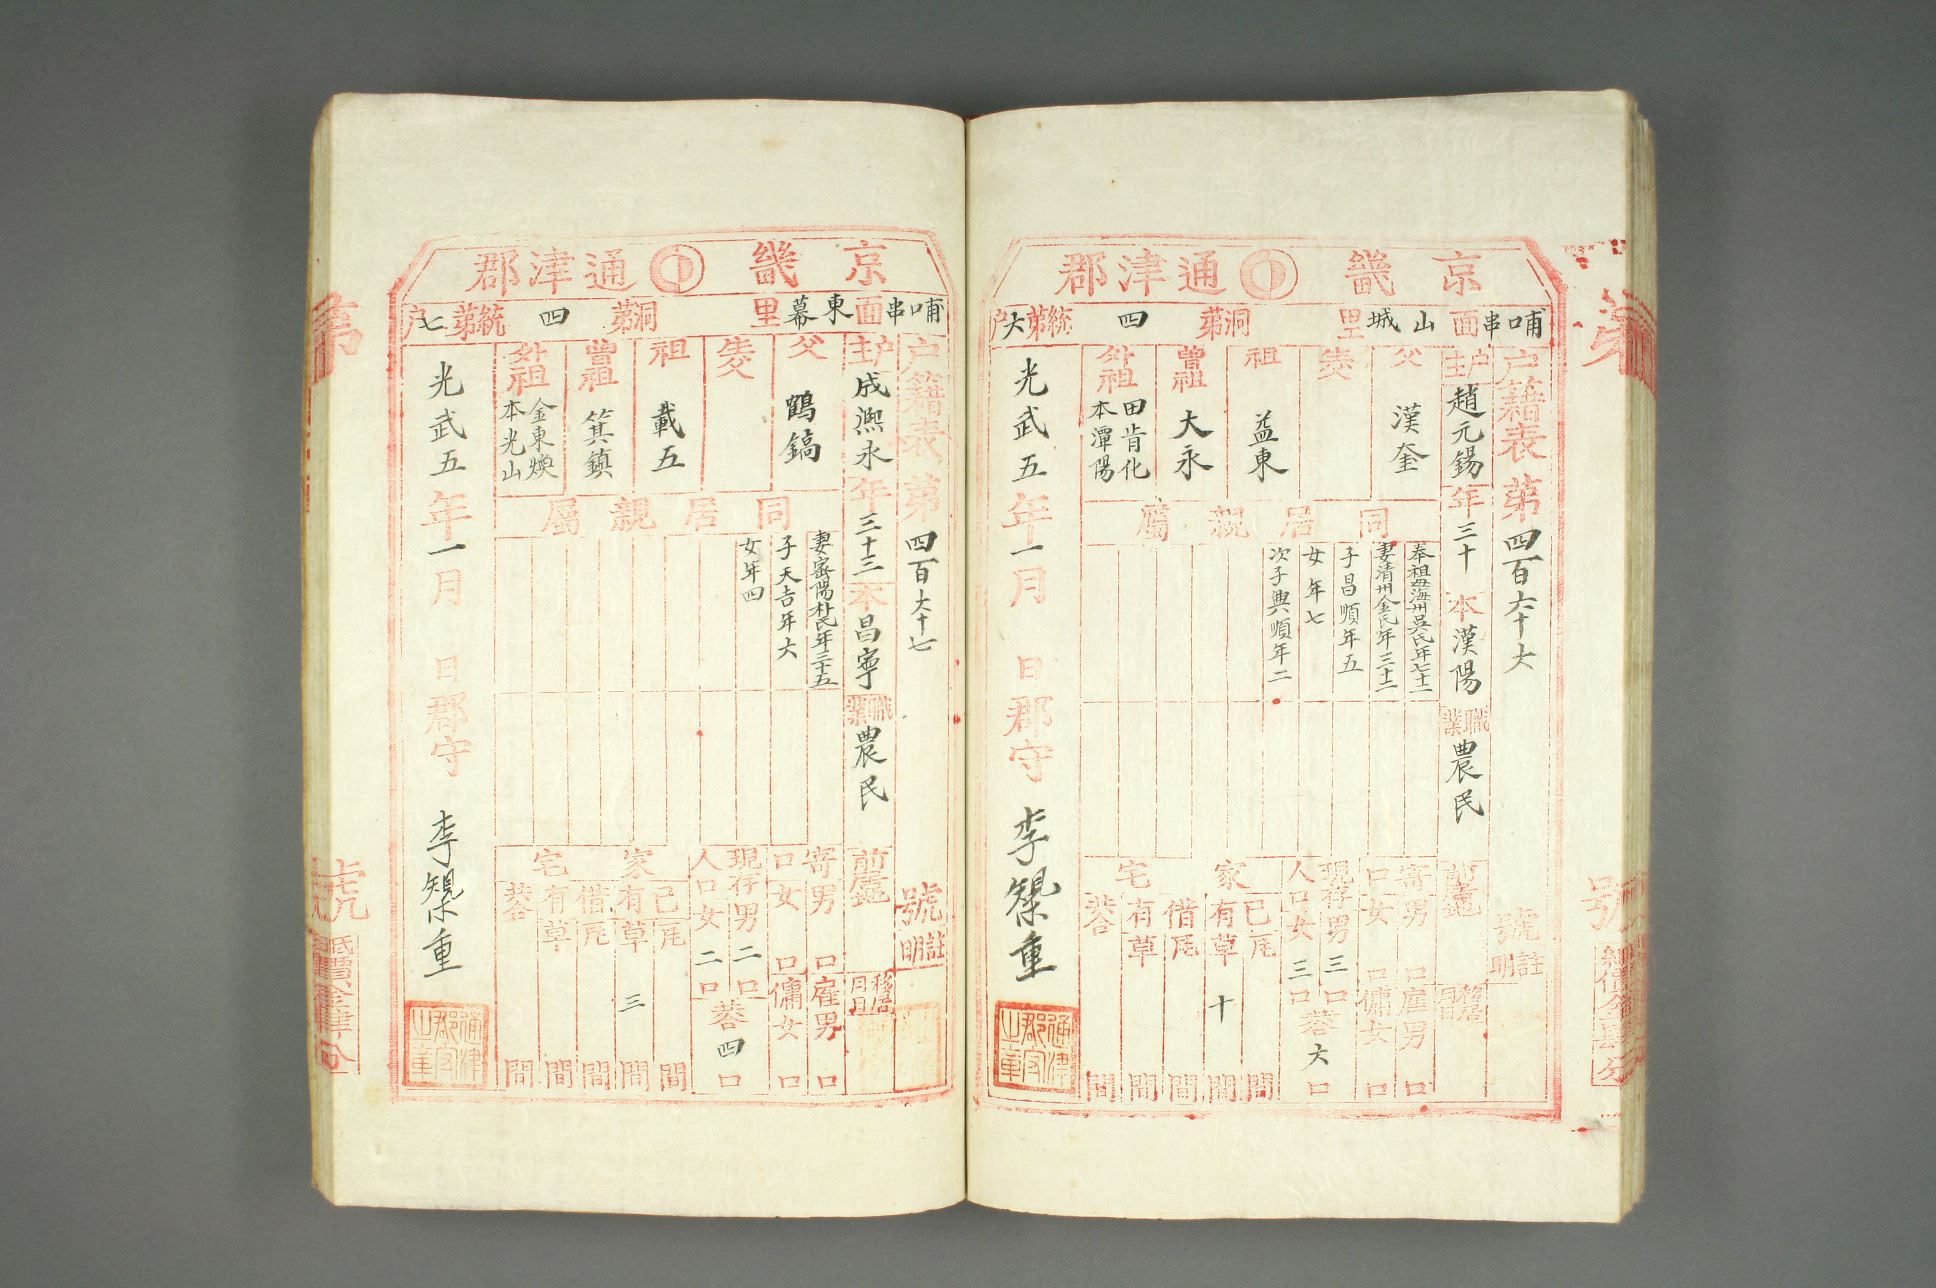 京畿 通津郡
哺串面 山城里 第洞 四 統第六户
户籍表 第四百六十六 號 註明
户主 趙元錫 年三十 本漢陽 職業 農民 前居地 移居 月日
父 漢奎
生父
祖 益東
曾祖 大永
外祖 田肯化 本潭陽
同居親屬
奉祖母海州吳氏年七十二
妻清州金氏年三十二
子昌順年五
女年七
次子興順年二
寄口 男 口 女 口
雇男 口 傭女 口
現存人口 男三口 女三口 共六口
家宅
己有 瓦 間
草 十 間
借有 瓦 間
草 間
共 間
光武五年一月 日 郡守 李榘重
通津郡守之章
京畿 通津郡
哺串面 東幕里 第洞 四 統第七户
户籍表 第四百六十七 號 註明
户主 成凞永 年三十三 本昌寧 職業 農民 前居地 移居 月日
父 鶴鎬
生父
祖 載五
曾祖 箕鎮
外祖 金東煥 本光山
同居親屬
妻密陽朴氏年三十五
子天吉年六
女年四
寄口 男 口 女 口
雇男 口 傭女 口
現存人口 男二口 女二口 共四口
家宅
己有 瓦 間
草 三 間
借有 瓦 間
草 間
共 間
光武五年一月 日 郡守 李榘重
通津郡守之章